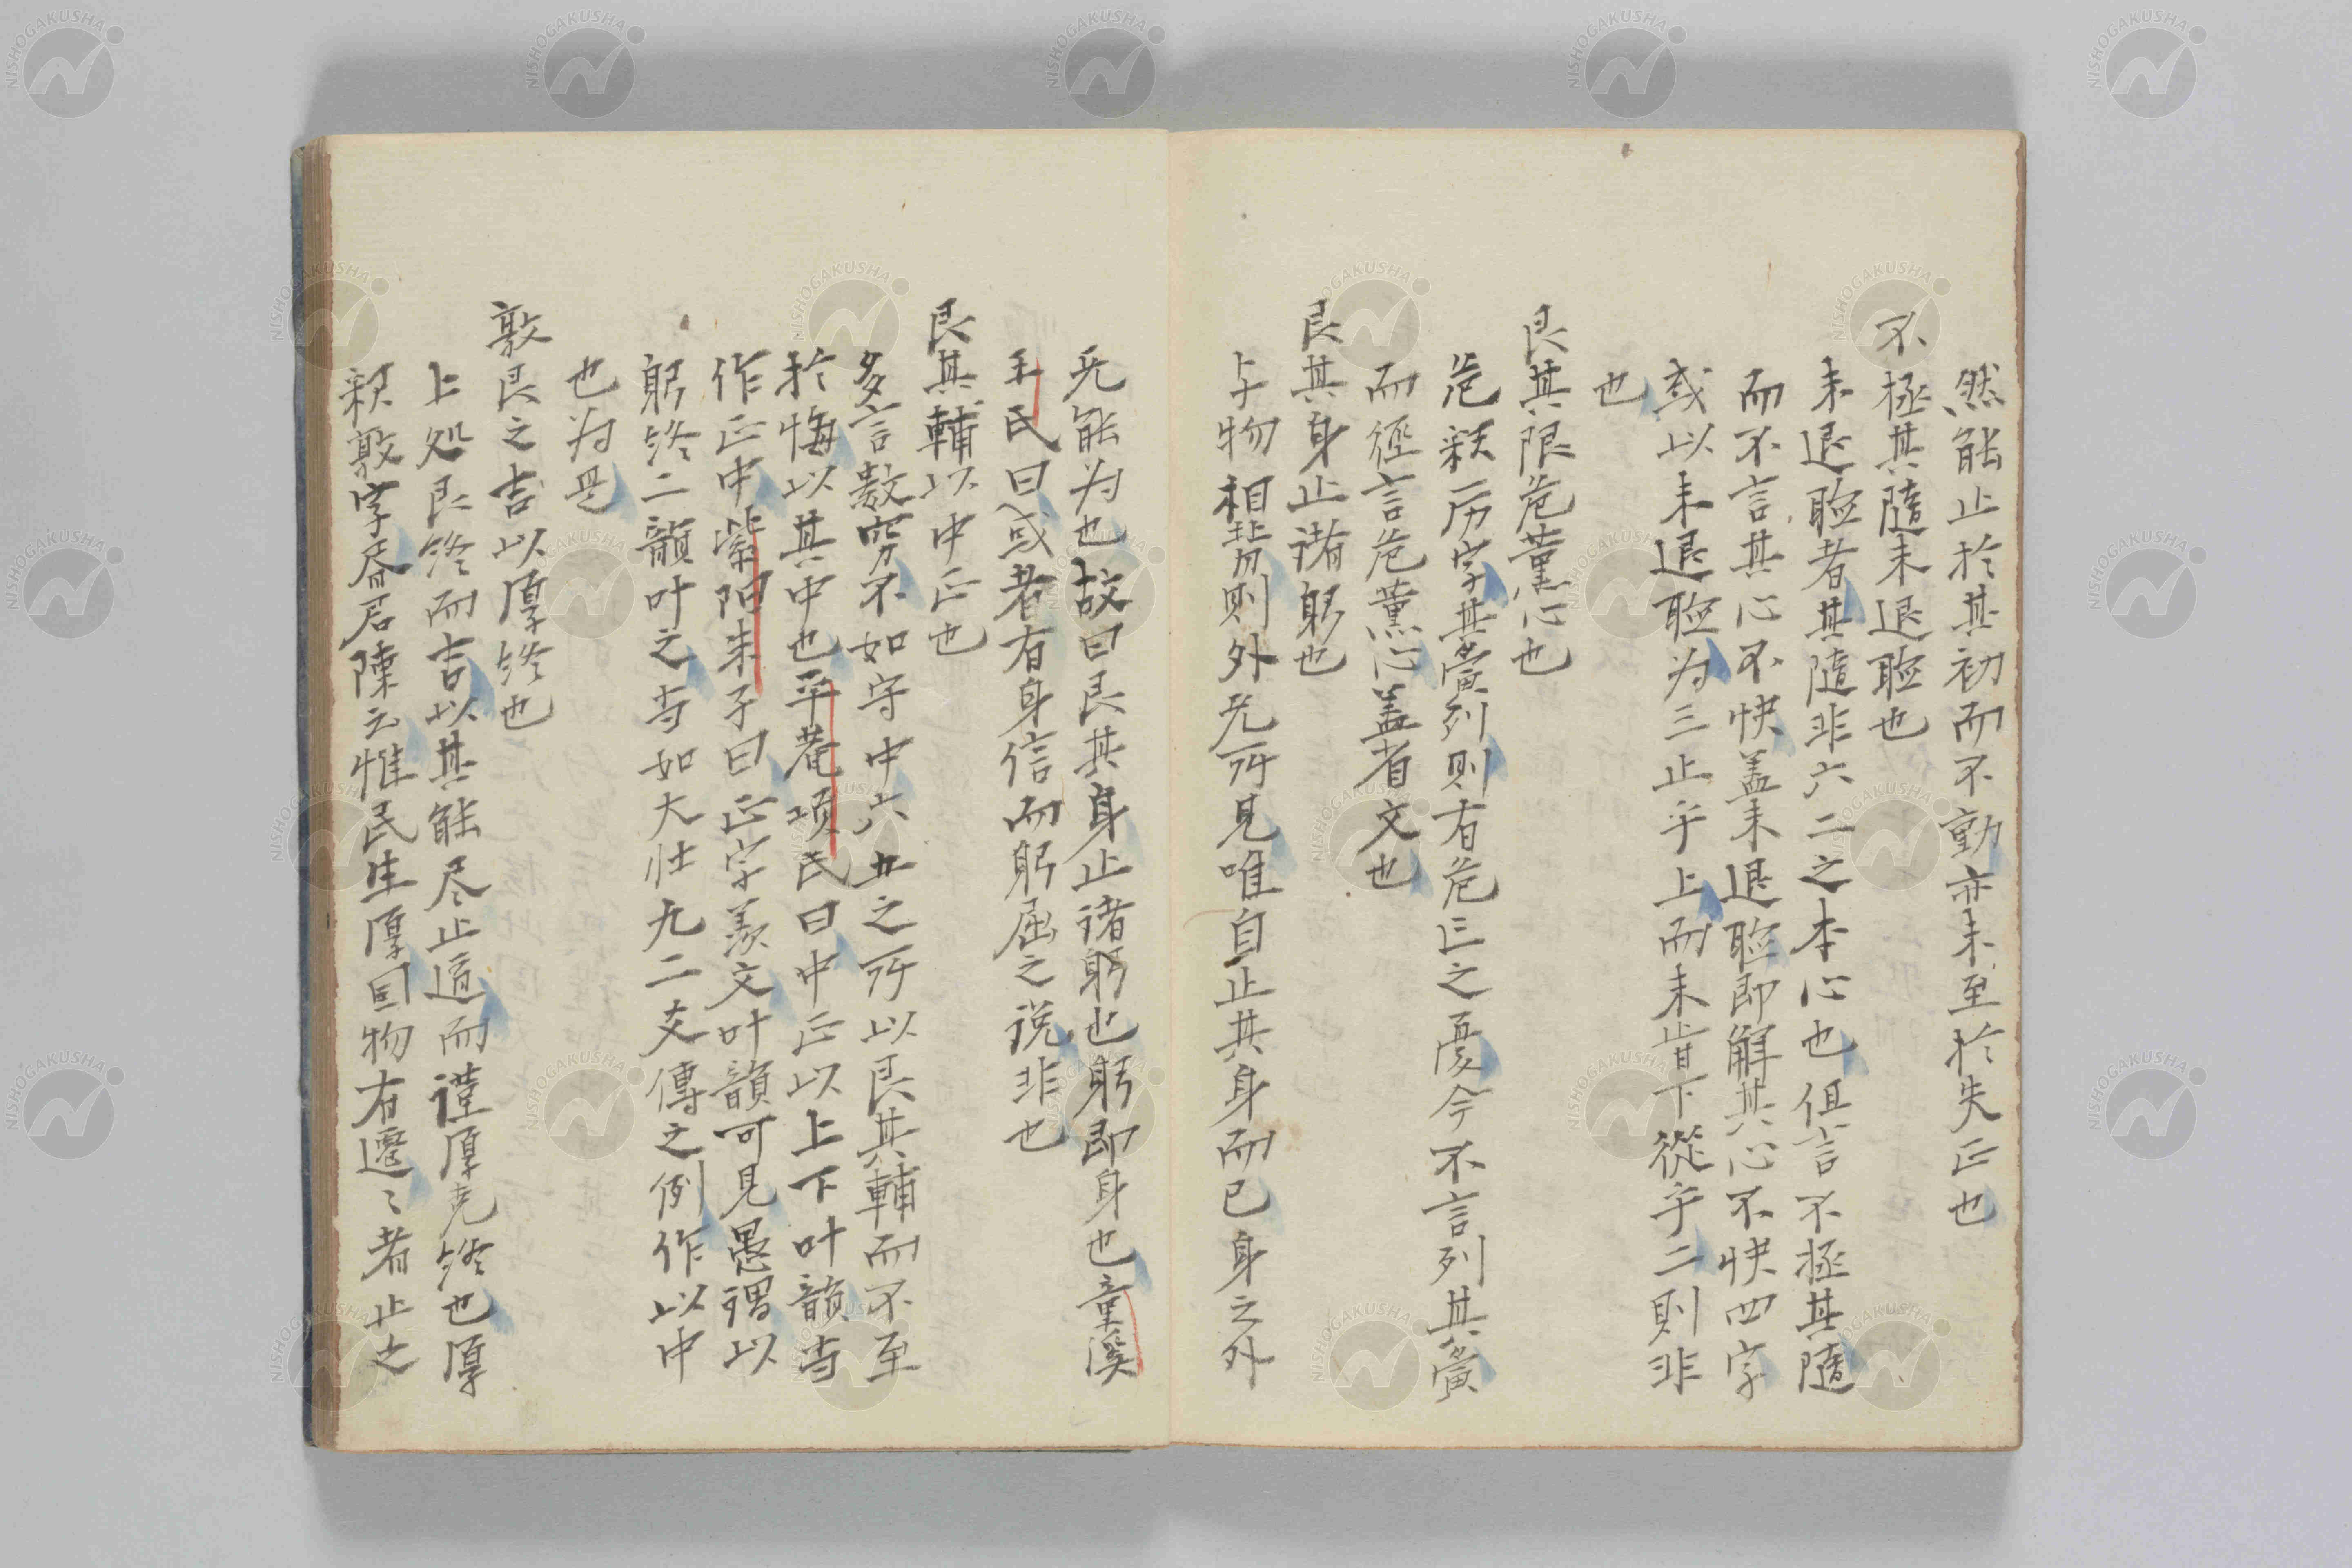 然能止於其初而不動亦未至於失正也
不極其隨未退聽也
未退聽者其隨非六二之本心也但言不極其隨
而不言其心不快盖未退聽即解其心不快四字
或以未退聽为三止乎上而未肯下從乎二則非
也
艮其限危薰心也
危釈厉字其夤列則有危亡之憂今不言列其夤
而徑言危薰心盖省文也
艮其身止諸躬也
与物相背則外无所見唯自止其身而已身之外
无能为也故曰艮其身止諸躬也躬即身也童溪
王氏曰或者有身信而躬屈之説非也
艮其輔以中正也
多言数窮不如守中六五之所以艮其輔而不至
於悔以其中也平菴項氏曰中正以上下叶韻当
作正中紫阳朱子曰正字羨文叶韻可見愚謂以
躬終二韻叶之当如大壮九二爻傳之例作以中
也为是
敦艮之吉以厚終也
上処艮終而吉以其能尽止道而謹厚克終也厚
釈敦字昏君陳云惟民生厚因物有遷〻者止之
NISHOGAKUSHA